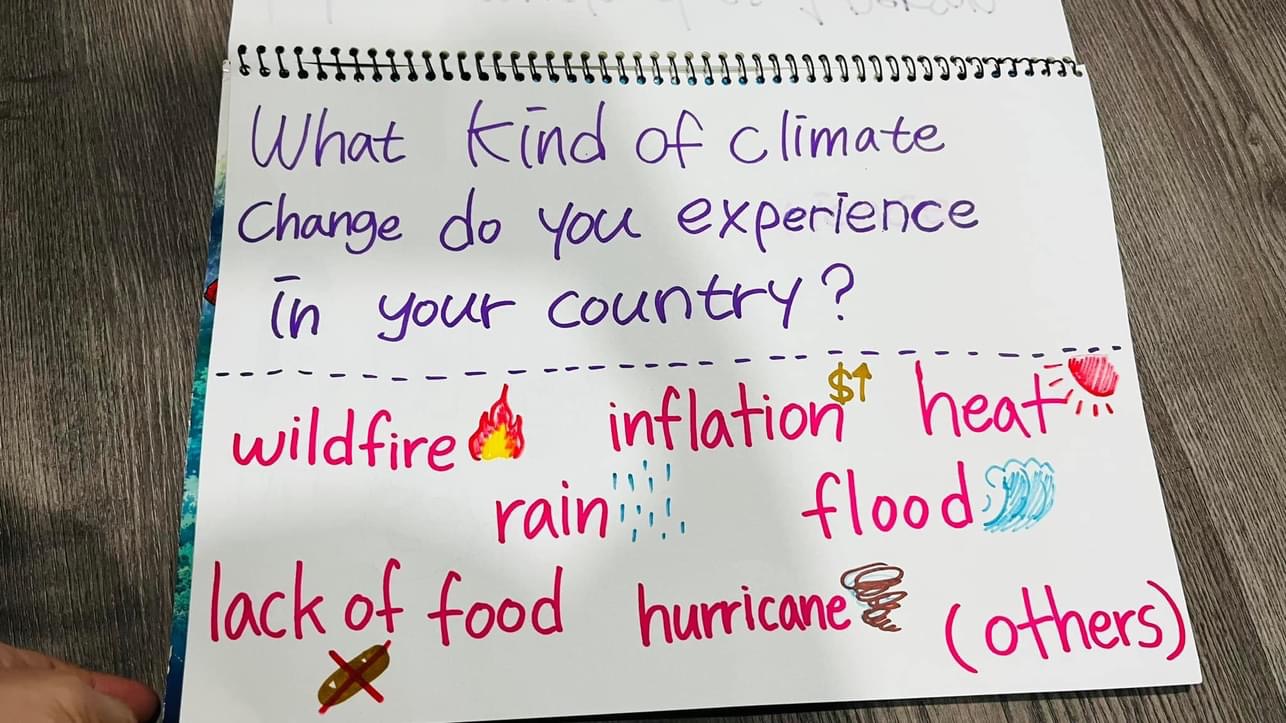 What kind of climate
change do you experience
in your country?
wildfire inflation $↑ heat
rain flood
lack of food hurricane (others)